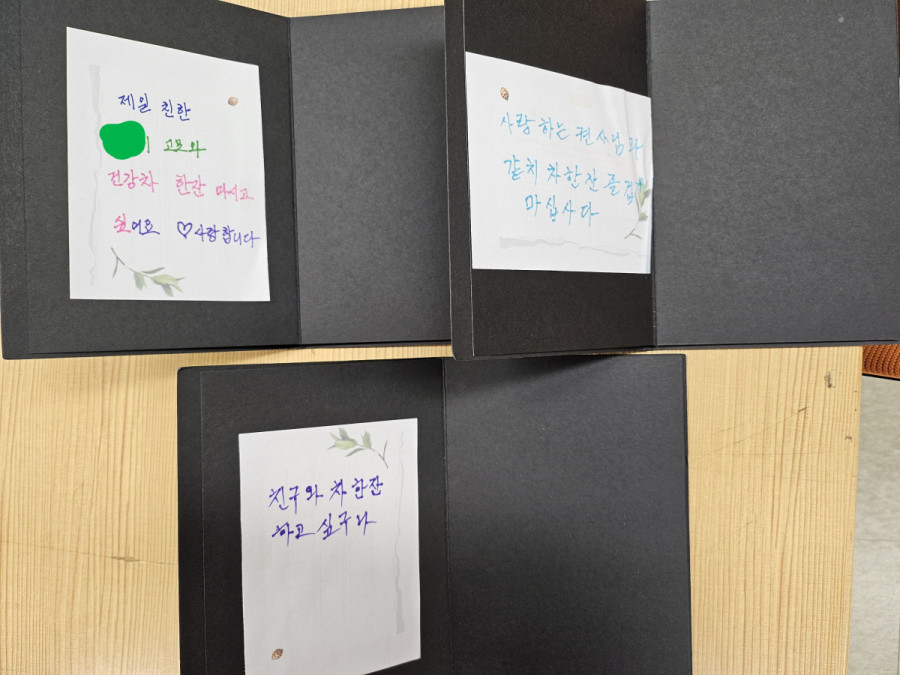 제일 친한
고모와
건강차 한잔 마시고
싶어요 ♡사랑합니다
사랑하는 권사님과
같치 차한잔 를겁
마십시다
친구와 차 한잔
하고 싶구나